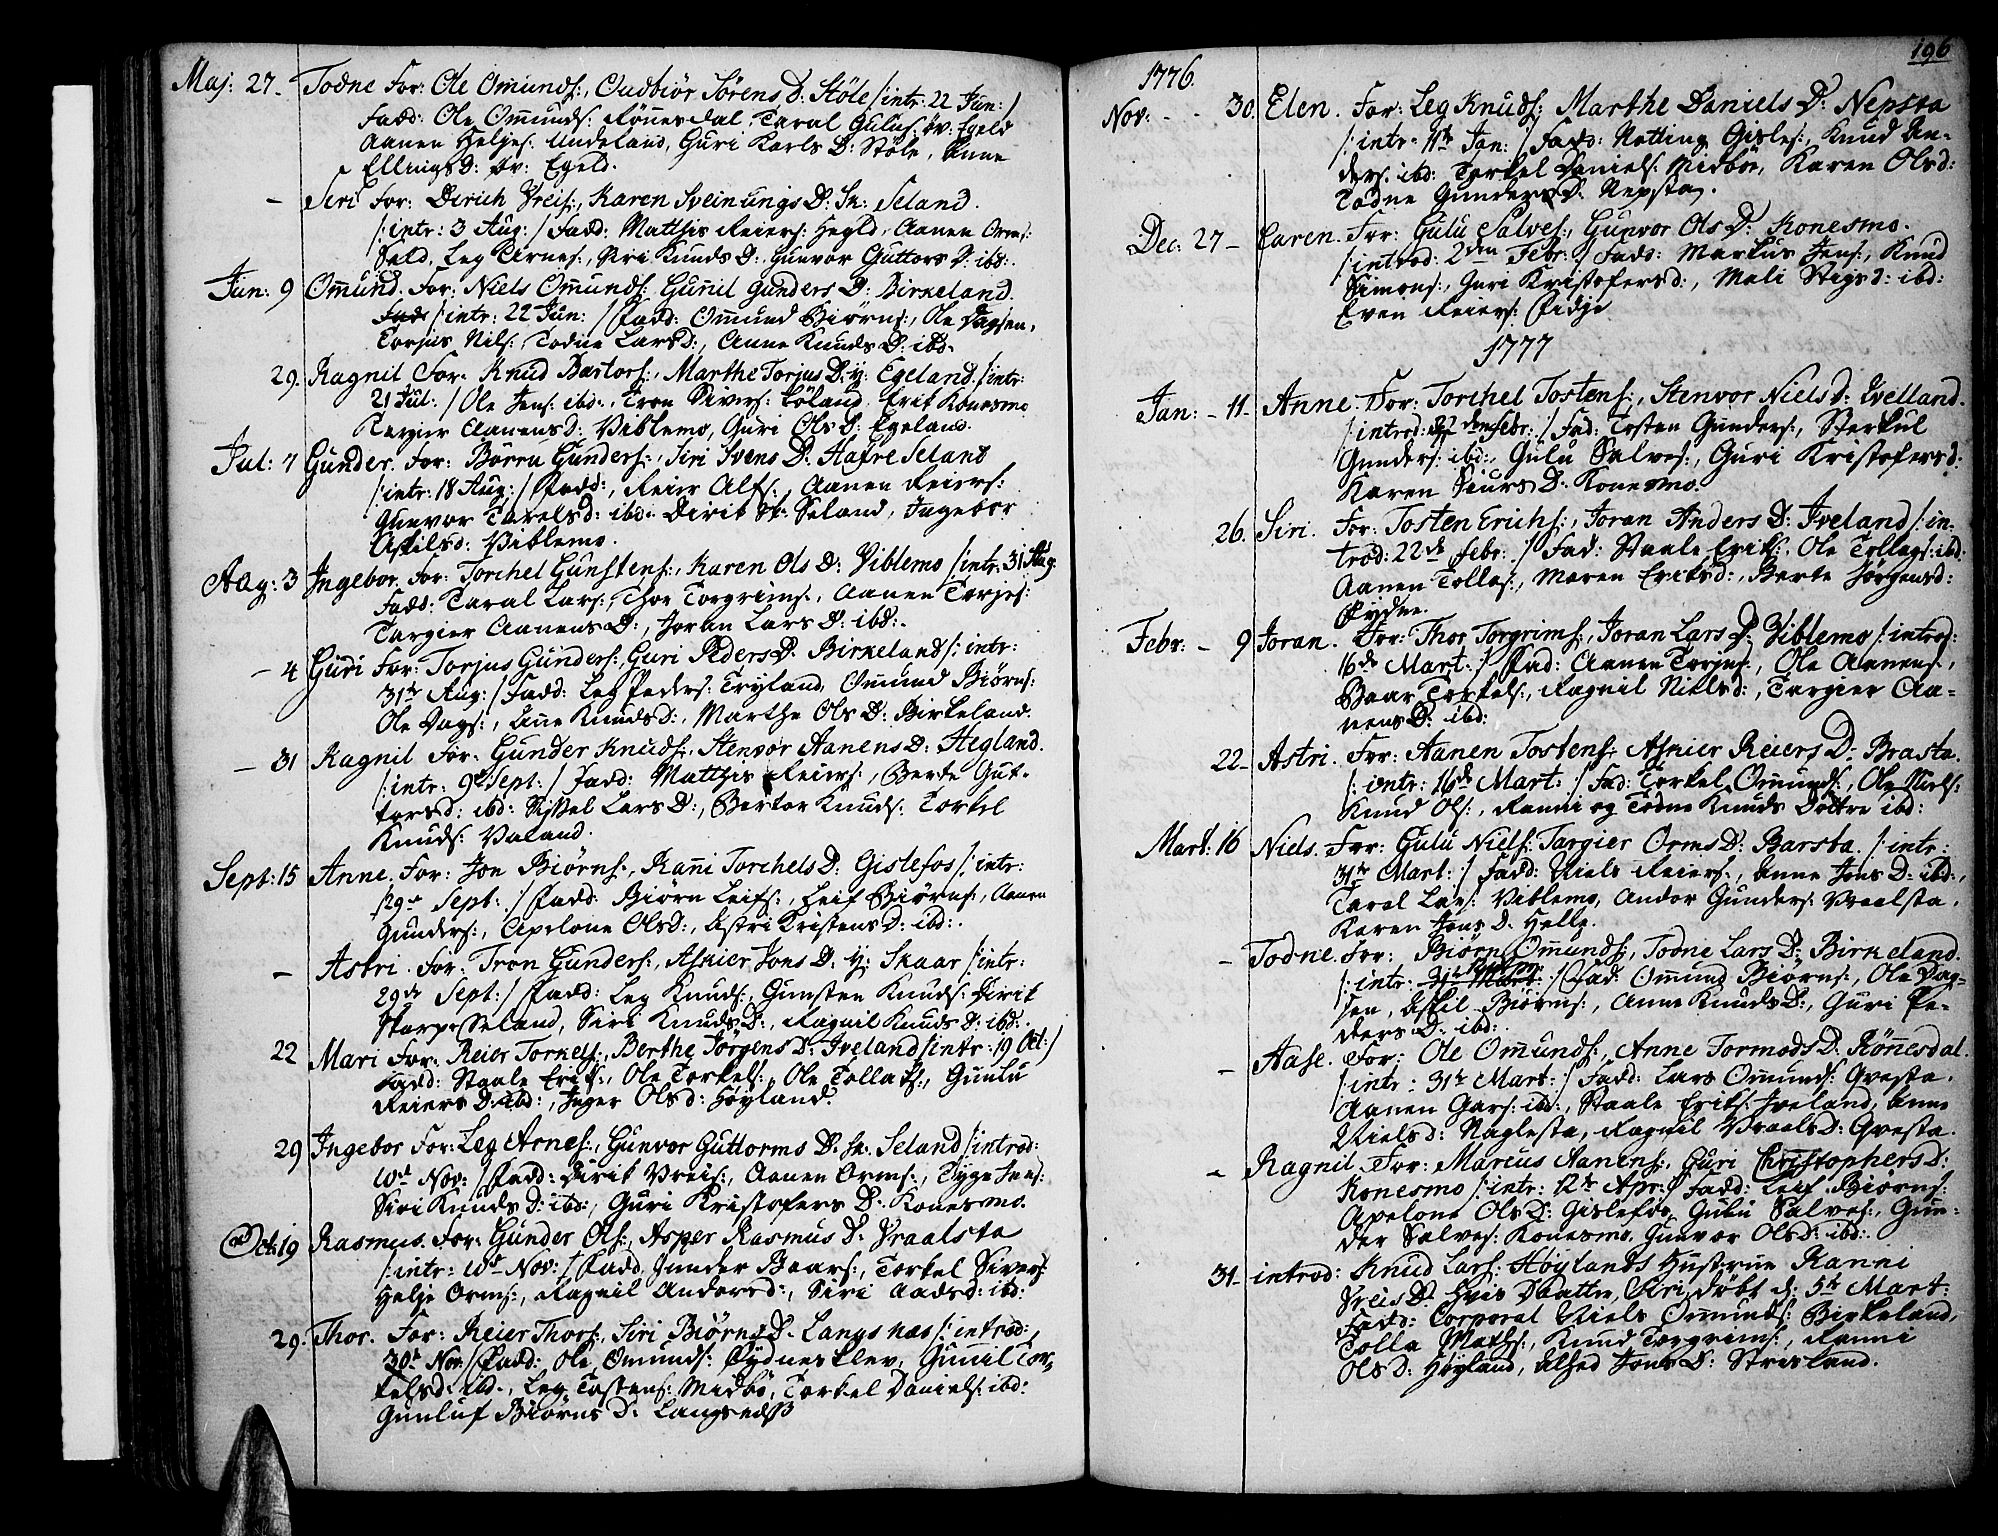 Maj: 27- Todne For: Ole Omunds:, Gudbiör Sörens D: Stöle /:intr: 22 Jun:/
Fadd: Ole Omunds: Rönnesdal, Taral Gulus: öv: Egeld
Aanen Heljes: Undeland, Guri Karls D: Stöle, Anne
Ellings D: öv: Egeld.
- Siri For: Dirich Vreis:, Karen Sveinungs D: Sk: Seland.
/:intr: 3 Aug:/ Fadd: Matthis Reiers: Hegld, Aanen Orms:
Seld, Leg Arnes:, Siri Knuds D: Gunvor Guttors D: ibd:.
Jun: 9 Omund. For: Niels Omunds: Gunil Gunders D: Birkeland.
/:intr: 22 Jun: / Fadd: Omund Biörns:, Ole Dagsen,
Torjus Nils: Todne Larsd:, Anne Knuds D: ibd-
29. Ragnil For: Knud Bartors:, Marthe Torjus D: y: Egeland. /:intr:
21 Jul: / Ole Jens: ibd:, Tron Sivers: Löland, Erik Konesmo
Targier Aanens D: Viblemo, Guri Ols D: Egeland.
Jul: 7 Gunder. For: Börru Gunders:, Siri Svens D: Hafre Seland
/:intr: 18 Aug: / Fadd:, Reier Alfs:, Aanen Reiers:
Gunvor Tarels d: ibd: Dirik Sk: Seland, Ingebor
Askilsd: Viblemo.
Aug: 3 Ingebor. For: Torchel Gunstens:, Karen Ols D: Viblemo /:intr: 31 Aug.
Fadd: Taral Lars:, Thor Torgrims:, Aanen Torjes:
Targier Aanens D:, Joran Lars D: ibd:.
- 4 Guri For: Torjus Gunders:, Guri Peders D: Birkeland /: intr:
31te Aug: / Fadd: Leg Peders: Tryland, Omund Biörns:
Ole Dags:, Anne Knuds D:, Marthe Ols D: Birkeland.
- 31 Ragnil For: Gunder Knuds:, Stenvor Aanens D: Hegland.
/:intr: 9de Sept: / Fadd: Matthis Reiers:, Berte Gut-
torsd: ibd: Sissel Lars D:, Bertor Knuds: Torkel
Knuds: Valand.
Sept: 15 Anne. For: Jon Biörns:, Rani Torchels D: Gislefos /: intr:
29de Sept: / Fadd: Biörn Leifs:, Leif Biörns:, Aanen
Gunders:, Apelone Olsd:, Astri Kristens D: ibd:.
- Astri. For: Tron Gunders:, Askier Jons D: y: Skaar /:intr:
29de Sept: / Fadd: Leg Knuds:, Gunsten Knuds: Dirik
Skarpesseland, Siri Knuds D:, Ragnil Knuds D: ibd:.
22 Mari For: Reier Torkels:, Berthe Jörgens D: Iveland /:intr: 19 Oct:/
Fadd: Staale Eriks:, Ole Torkels:, Ole Tollaks:, Gunlu
Reiers D: ibd:, Inger Olsd: Höyland.
29 Ingebor For: Leg Arnes:, Gunvor Guttorms D: Sk: Seland /:introd:
10de Nov: / Fadd: Dirik Vreis:, Aanen Orms:, Tyge Jens:
Siri Knuds D: ibd:, Guri Kristofers D: Konesmo.
Oct: 19 Rasmus. For: Gunder Ols:, Asper Rasmus D: Vraalsta
/:intr: 10de Nov: / Fadd, Gunder Baars:, Torkel Sivers:
Helje Orms:, Ragnil Andersd:, Siri Aadsd: ibd:
29. Thor. For: Reier Thors:, Siri Biörns D. Langsnæs /: introd:
30te Nov / Fadd: Ole Omunds: Øydnesklev, Gunil Tor-
kelsd: ibd., Leg Tostens: Midbö, Torkel Daniels: ibd:
Gunluf Biörns D: Langsneds
196
1776.
Nov: - - 30. Elen. For: Leg Knuds: Marthe Daniels D: Nepsta
/:intr: 1te Jan: / Fadd: Notting Gisles:, Knud An-
ders: ibd: Torkel Daniels: Midbör, Karen Olsd:
Todne Gunders D: Nepsta.
Dec: 27 - Caren. For: Gulu Salves:, Gunvor Ols D: Konesmo.
/:introd: 2den Febr: / Fadd: Markus Jens:, Knud
Simons:, Guri Kristofersd:, Mali Stigsd: ibd:
Even Reiers: Fidje
1777
Jan: - 11. Anne. For: Torchel Tostens:, Stenvor Niels D: Qvelland.
/:introd: 2den Febr: / Fad: Tosten Gunders:, Sterkul
Gunders: ibd:, Gulu Salves:, Guri Kristofersd:
Karen D: Konesmo.
26. Siri. For: Tosten Erichs:, Joran Anders D: Iveland /: in-
trod: 22de Febr: / Fad: Staale Eriks:, Ole Tollags: ibd:
Aanen Tollas:, Maren Eriksd:, Berte Jörgensd:
Øydne.
Febr: - 9 Joran. For: Thor Torgrims:, Joran Lars D: Viblemo /: introd:
16de Mart: / Fad: Aanen Torjus:, Ole Aanens:,
Baar Torkels:, Ragnil Nielsd:, Targier Aa-
nens D: ibd:
22- Astri. For: Aanen Tostens: Askier Reiers D: Brasta.
/: intr: 16de Mart: / Fad: Torkel Omunds:, Ole Niels:
Knud Ols:, Ranni og Todne Knuds Döttre ibd:
Mart: 16 Niels. For: Gulu Niels: Targier Orms D: Barsta. /:intr:
31te Mart: / Fadd: Niels Reiers:, Anne Jons D: ibd:,
Taral Lars: Viblemo, Andor Gunders: Vraalsta,
Karen Jons D. Helle.
- Todne. For: Biörn Omunds:, Todne Lars D: Birkeland.
/:intr: 31te Mart: / Fad: Omund Biörns:, Ole Dag-
sen, Askil Biörns:, Anne Knuds D:, Guri Pe-
ders D: ibd:.
- Aase. For: Ole Omunds:, Anne Tormods D: Rönesdal.
/:intr: 31te Mart: / Fadd: Lars Omunds: Qvesta,
Aanen Gars: ibd:, Staale Eriks: Iveland, Anne
Nielsd: Naglesta, Ragnil Vraals D: Qvesta.
- Ragnil. For: Marcus Aanens:, Guri Christophers D:
Konesmo /:intr: 12te Apr:/ Fadd: Leif Biörns:
Apelone Ols D: Gislefos, Gulu Salves:, Gun-
der Salves: Konesmo, Gunvor Olsd: ibd:.
31- introd: Knud Lars: Höylands Hustrue Ranni
Vreis D: Hvis Datter, Siri, döbt d: 5te Mart:
Fadd: Corporal Niels Omunds: Birkeland,
Tolla Maths:, Knud Torgrims:, Ranni
Olsd: Höyland, Alsed Jons D: Strisland.